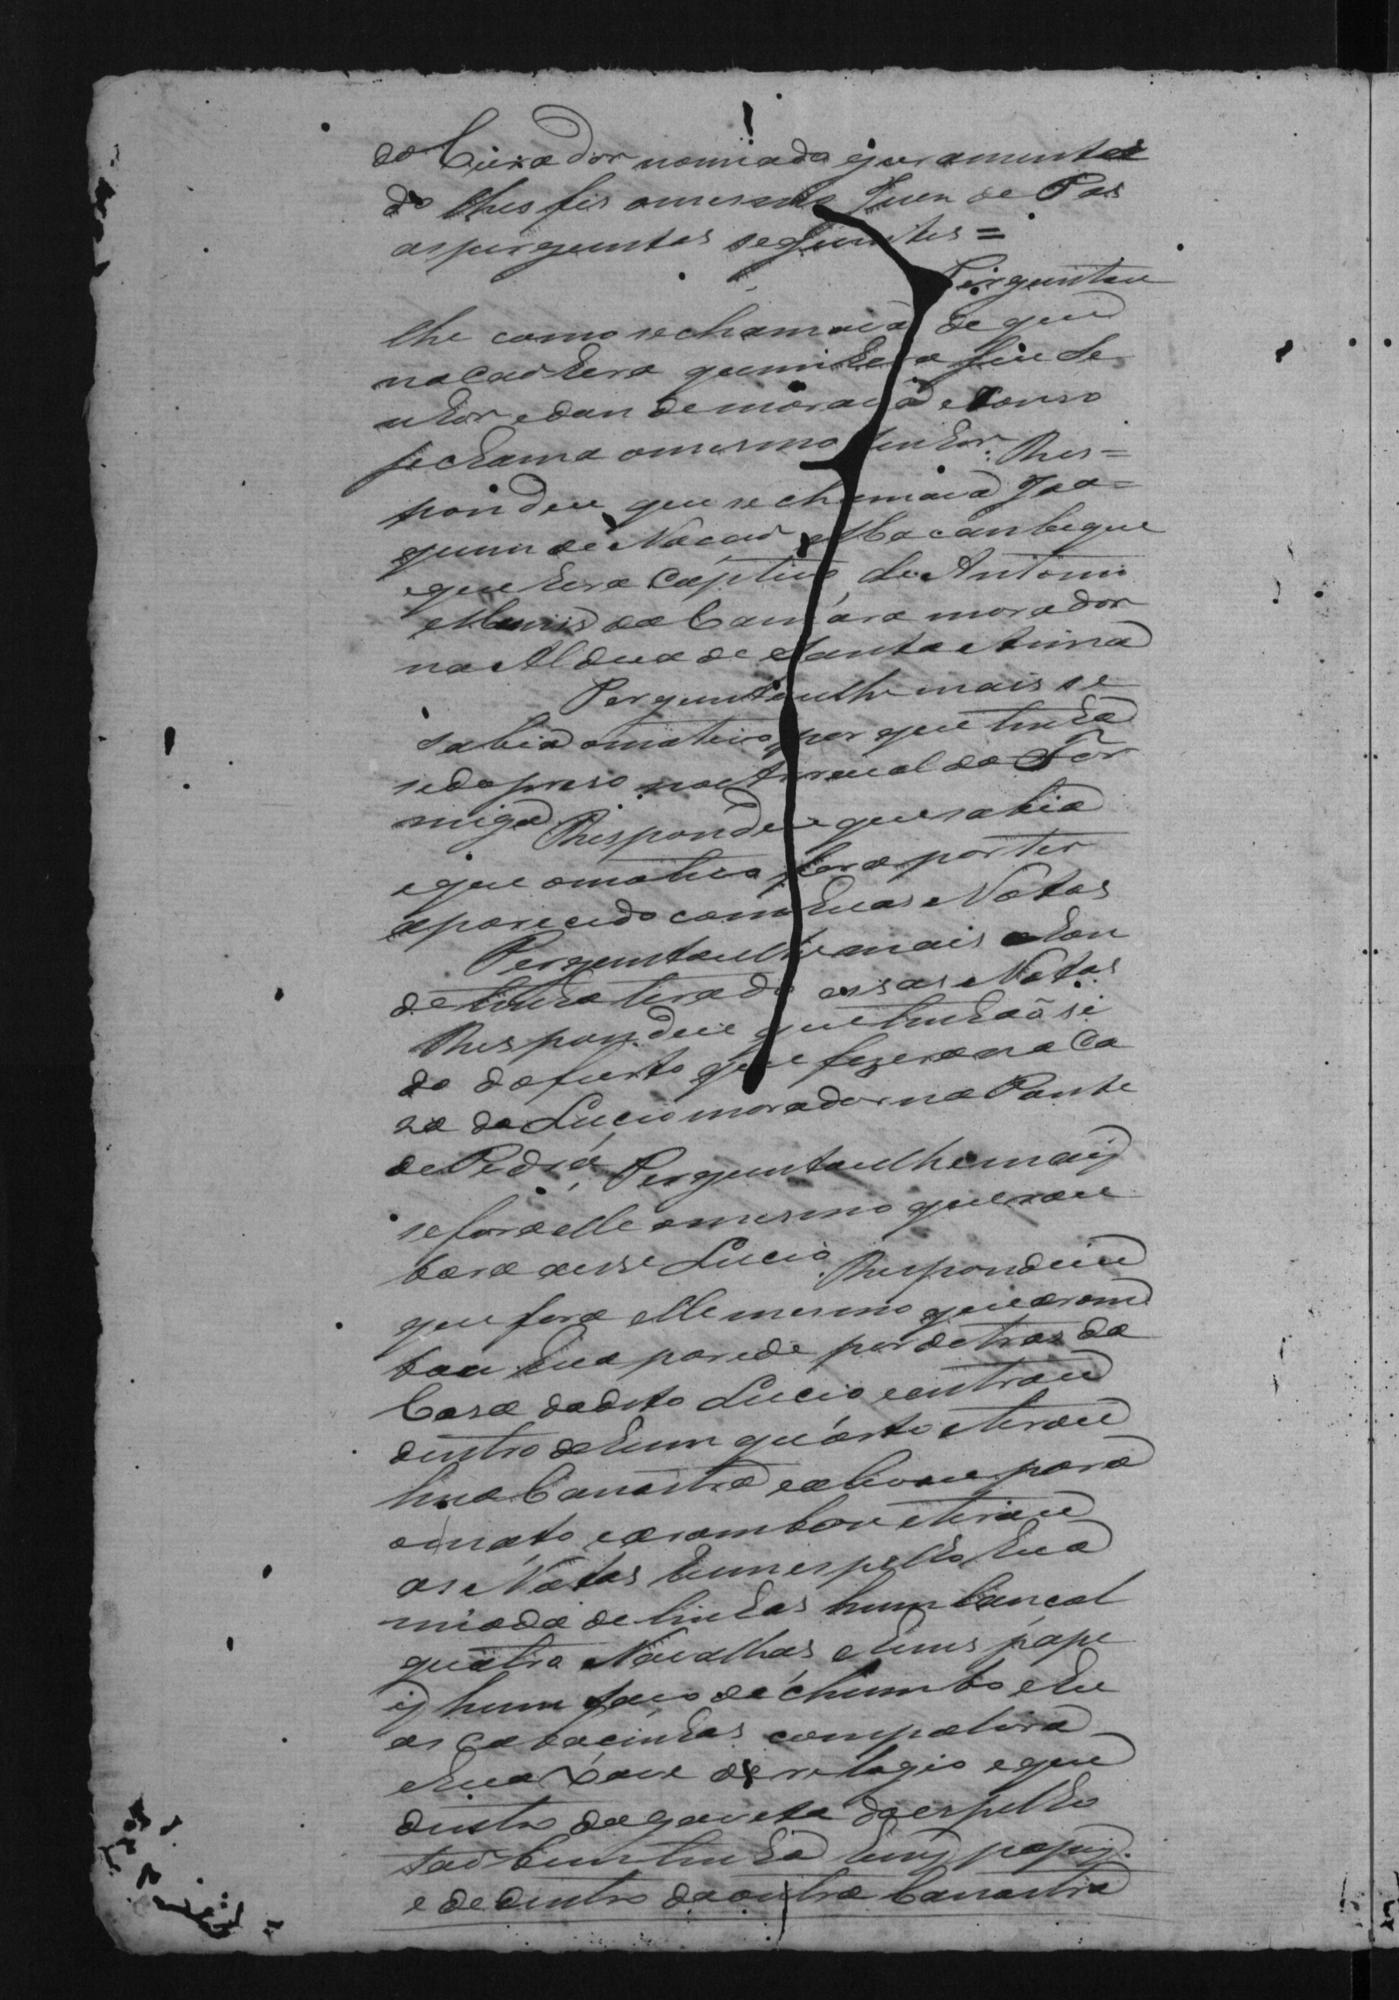 do Curador nomiado ejuramenta
do lhes fes omesmo Juen de Pas
asperguntas seguintes =
Perguntou
lhe como se chamava de que
nacaõ hera quem hera seu Se
nhor edonde morava e como
se chama omesmo senhor. Res=
pondeu que se chamava Joa=
quim de Nacaõ Mocambeque
eque hera Captivo de Antonio
Muniz da Camára morador
na Aldeia de Santa Anna
Perguntoulhe mais se
sabia omotivo por que tinha
sido preso no Arraial da For
miga Respondeu que sabia
eque omotivo fora por ter
aparecido com huas Notas
Perguntoulhe mais a hon
de tinha tirado essas Notas
Respondeu que tinhaõ si
do do furto que fezera na Ca
za de Lucio morador na Ponte
de Pedra, Perguntoulhe mais
se fora elle omesmo que rou
bara a esse Lucio. Respondeu
que fora elle mesmo que arom
bou hua parede por detras da
Casa do dito Lucio e entrou
dentro de hum quarto e tirou
hua Canastra e a levou para
o mato e a rombou e tirou
as Notas hum espelho hua
miada de linhas hum lancol
quatro Navalhas e huns pape
is hum saco de chumbo e du
as Cabacinhas com polvra
e hua xave de relogio e que
dentro da gaveta do espelho
taõ bem tinha huns papeis.
e de dentro da outra Canastra